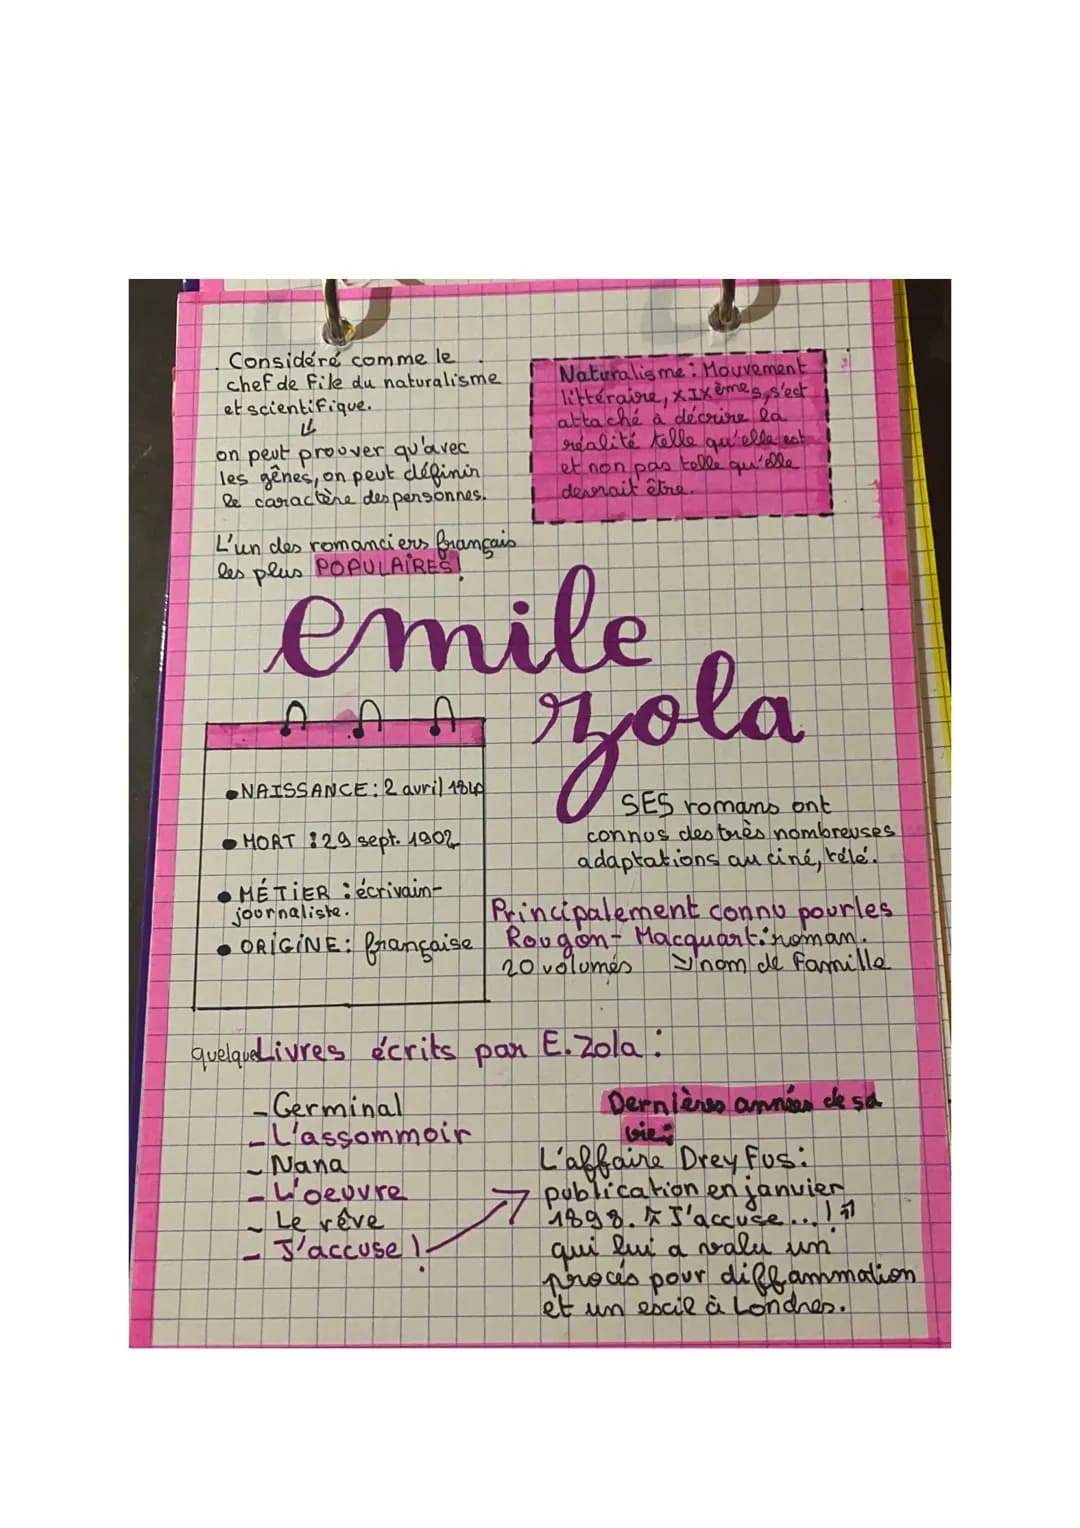 Considéré comme le
chef de file du naturalisme
et scientifique.
on peut proover qu'avec
les gênes, on peut définin
le caractère des personnes.
L'un des romanciers français
les plus POPULAIRES!
Naturalisme: Mouvement
littéraire, XIXème s, s'est
attaché à décrire la
réalité telle qu'elle est
et non pas telle qu'elle
devrait être.
emile
zola
•NAISSANCE: 2 avril 1840
•MORT : 29 sept. 1902
•MÉTIER : écrivain-
journaliste.
•ORIGINE: française
SES romans ont
connus des très nombreuses
adaptations au ciné, télé.
Principalement connu pour les
Rougon-Macquart: roman.
20 volumes nom de famille
quelque Livres écrits par E. Zola :
- Germinal
- L'assommoir
- Nana
- L'oeuvre
- Le rêve
- J'accuse !
Dernières années de sa
vie:
L'affaire Dreyfus:
publication en janvier
1898. « J'accuse...! »
qui lui a valu un
procés pour diffammation
et un escil à Londres.